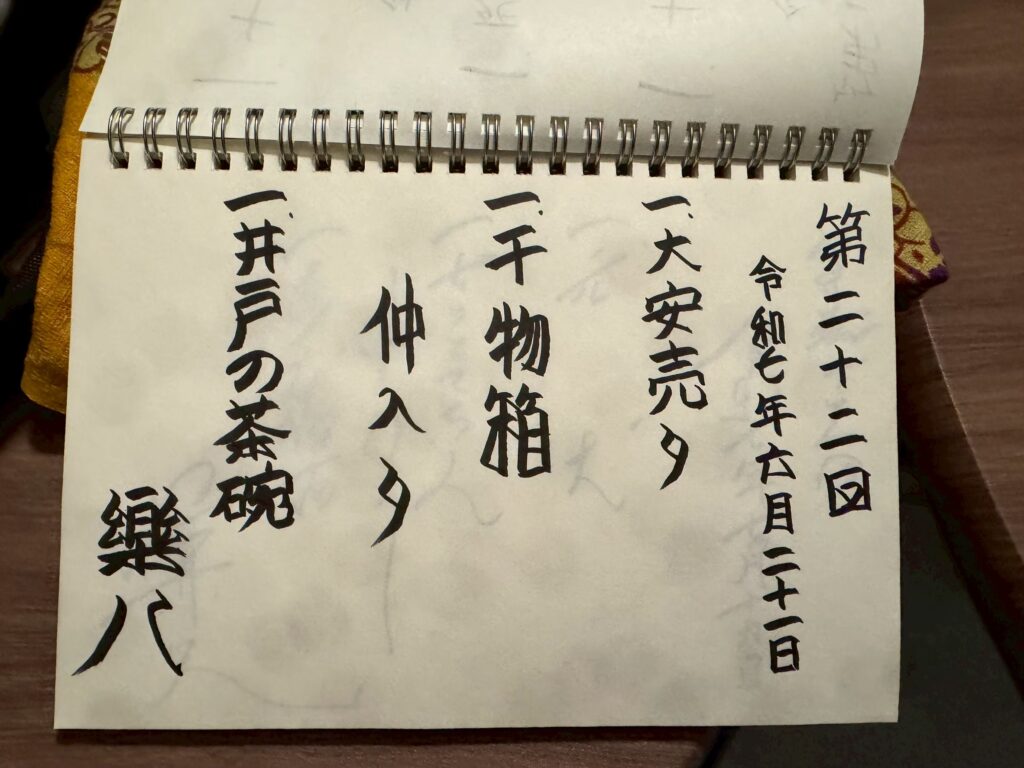 第二十二回
令和七年六月二十一日
一、大安売 夕
一、干物箱
仲入 夕
一、井戸の茶碗
樂八